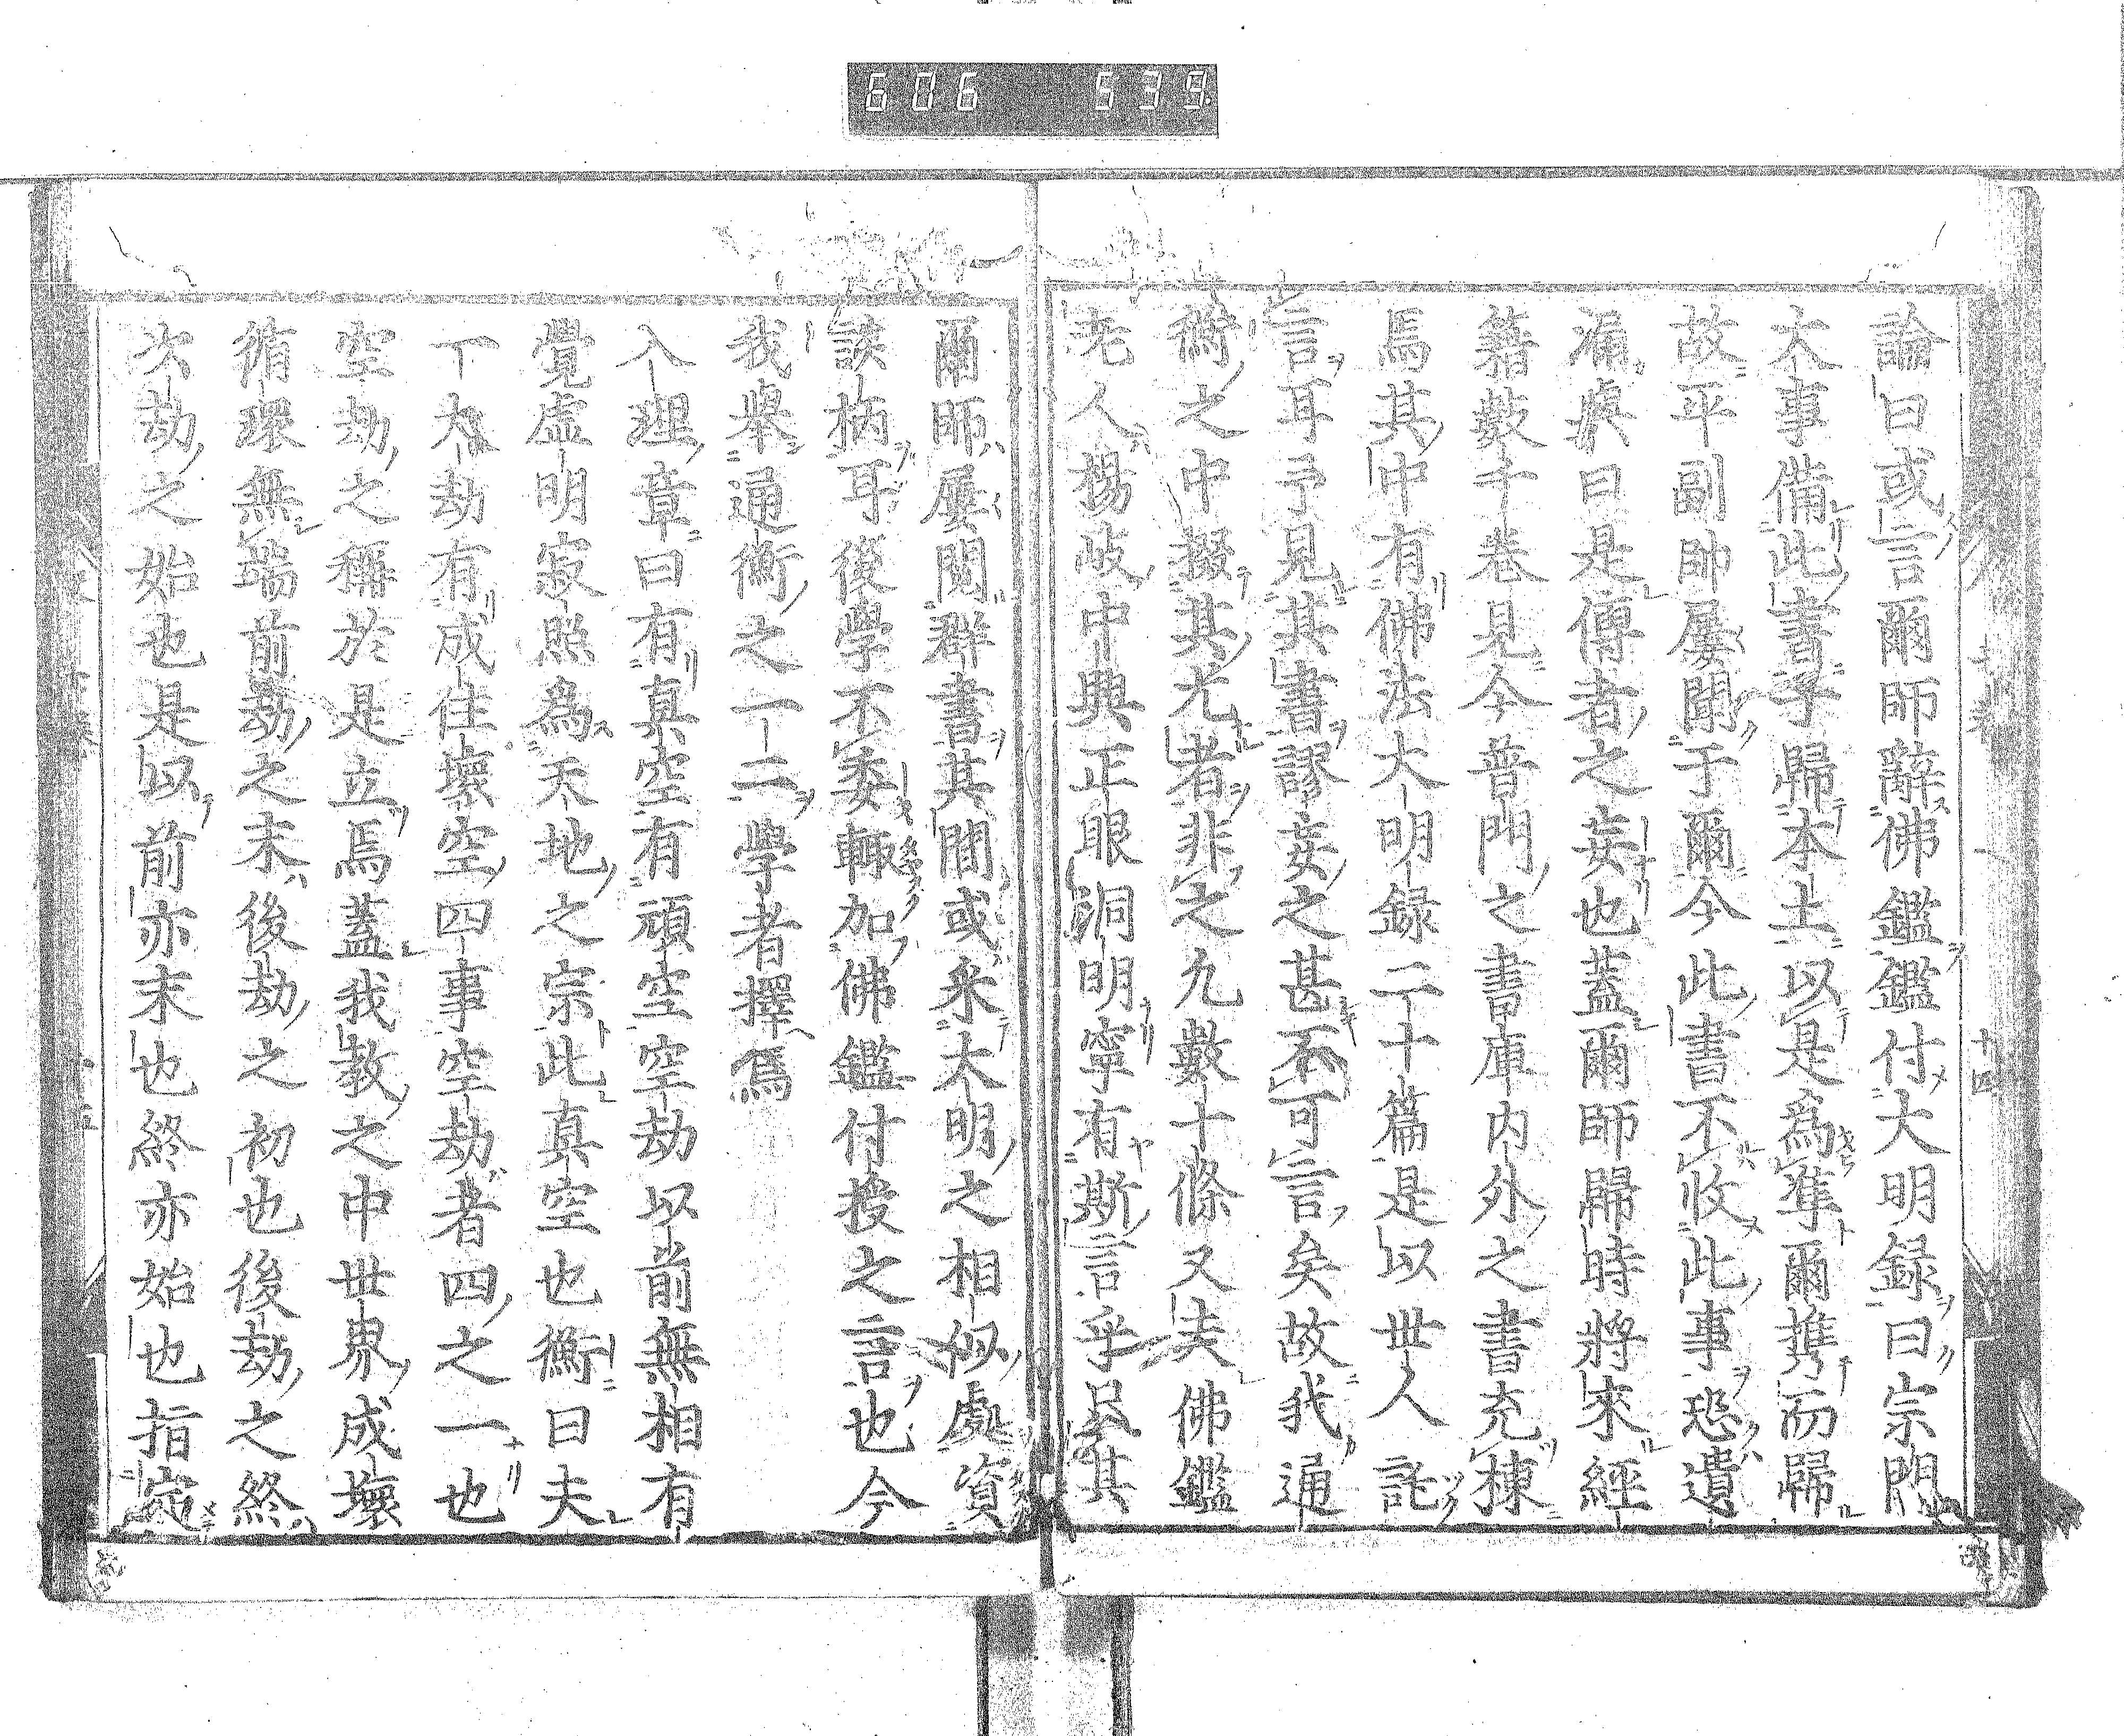 606 539
論曰或言爾師辭佛鑑鑑付大明録曰宗門
大事備此書予歸本土以是爲準爾携而歸
故平副帥屢聞于爾今此書不收此事恐遺
漏歟曰是傳者之妄也蓋爾師歸時將來經
籍數千卷見今普門之書庫内外之書充棟
焉其中有佛法大明録二十篇是以世人託
言耳予見其書謬妄之甚不可言矣故我通
衡之中掇其尤者非之九數十條又夫佛鑑
老人楊岐中興正眼洞明寧有斯言乎只其
爾師屢閲群書其間或采大明之相似處資
談柄耳後學不委輙加佛鑑付授之言也今
我舉通衡之一二學者擇焉
入理章曰有真空有頑空空劫以前無相有
覺虚明寂照爲天地之宗此真空也衡曰夫
一大劫有成住壞空四事空劫者四之一也
空劫之稱於是立焉蓋我教之中世界成壞
循環無端前劫之末後劫之初也後劫之終
次劫之始也是以前亦末也終亦始也指定
十四